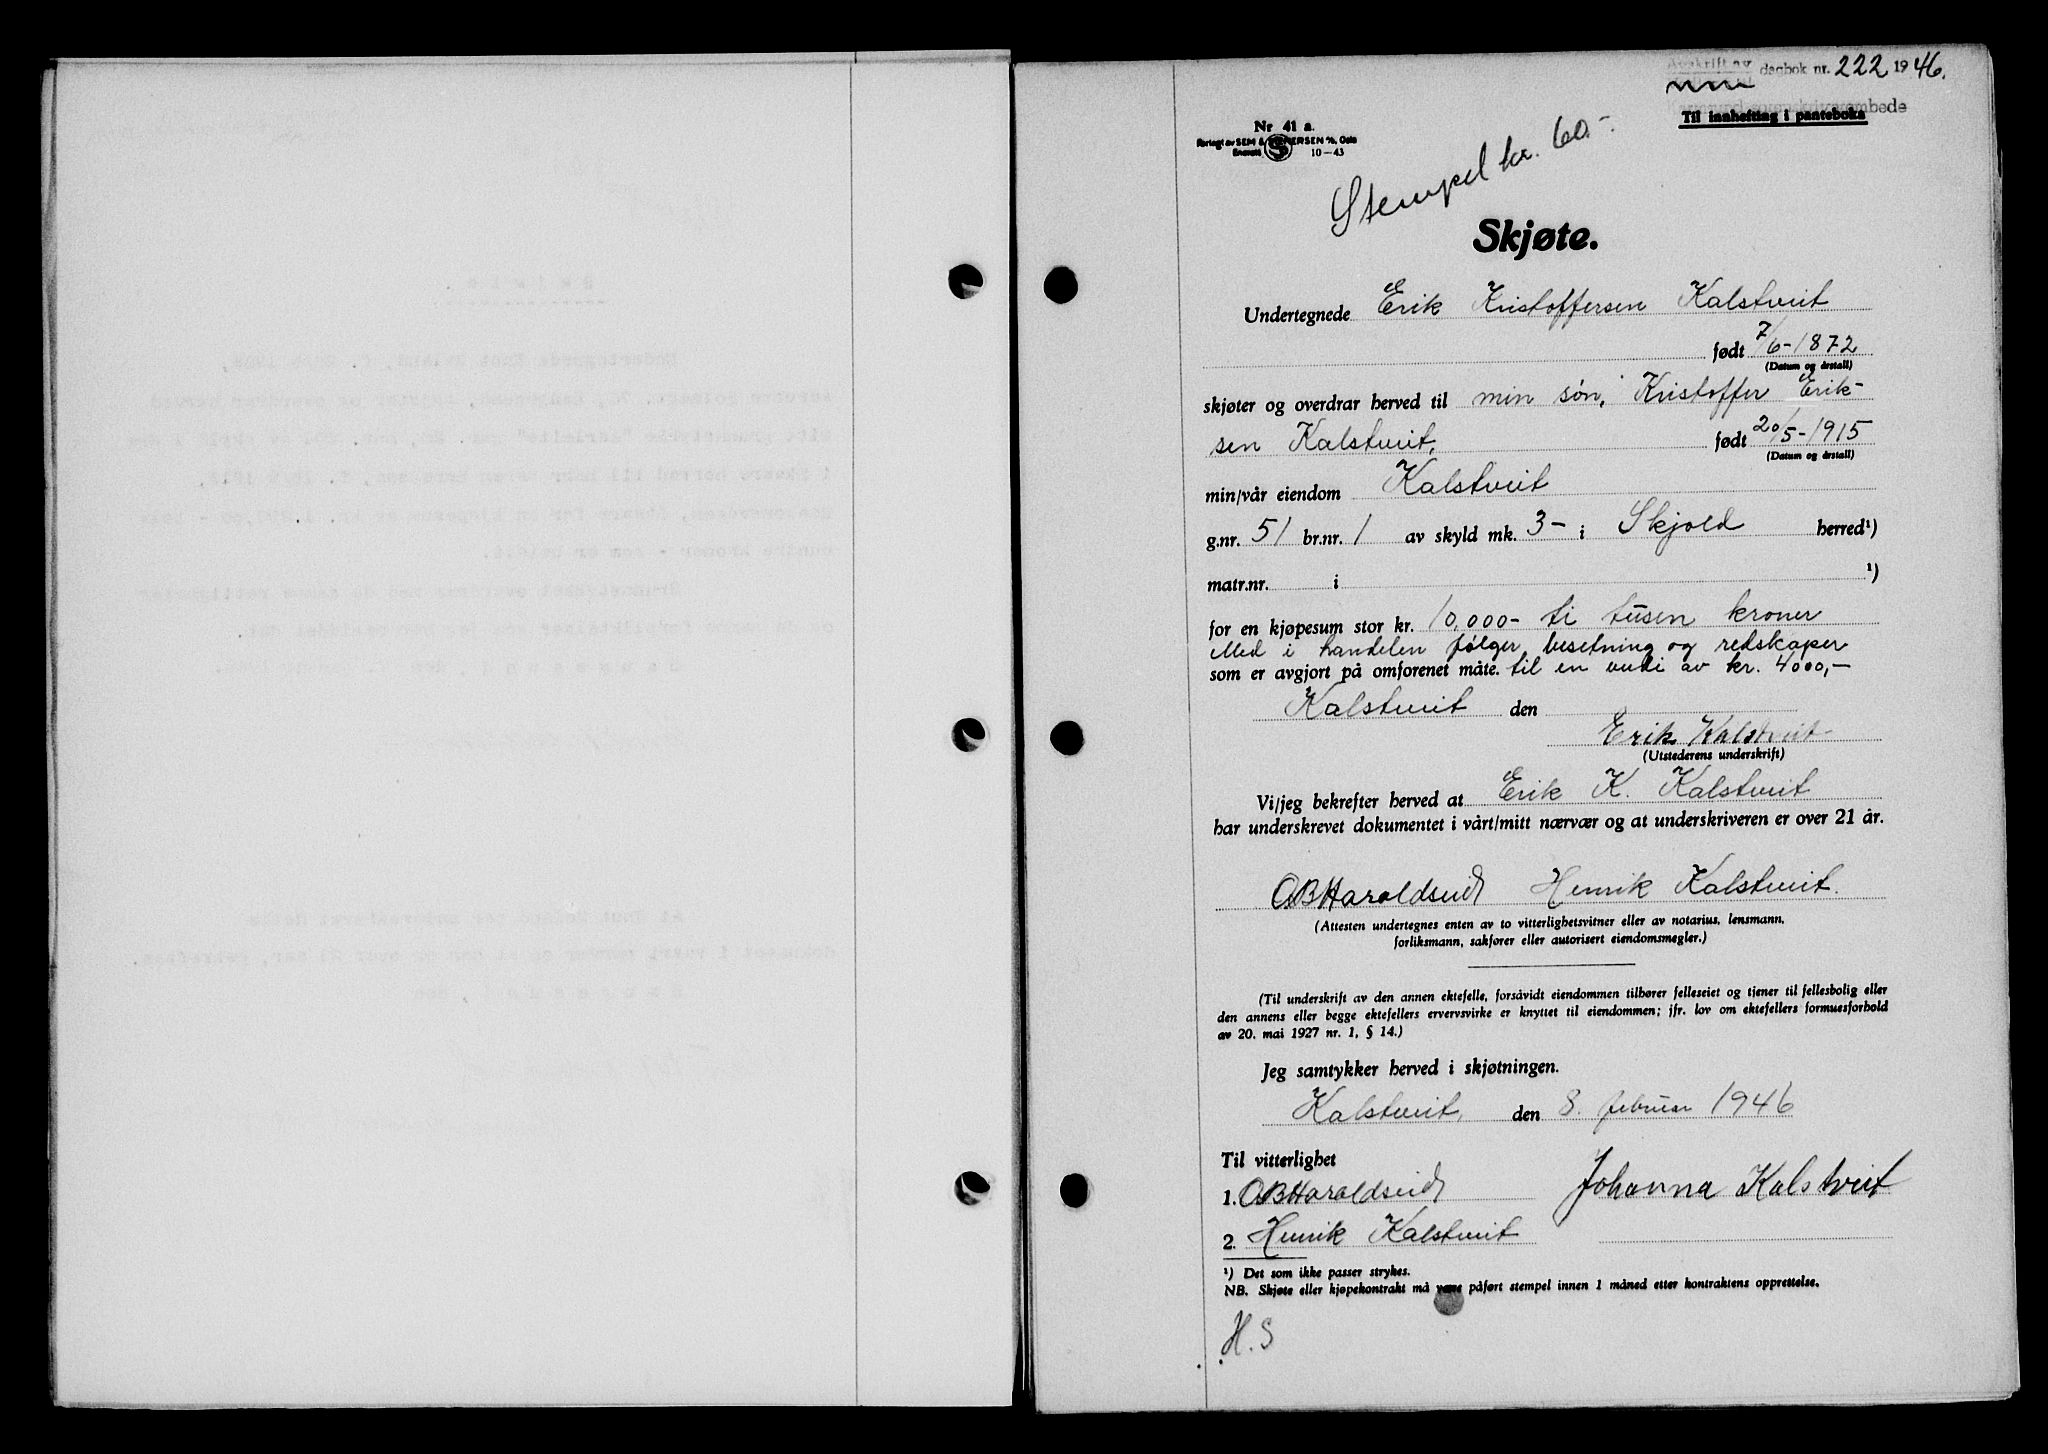 Avskrift av dagbok nr. 222 1946.
Karmsund sorenskriverembede
Til innhefting i panteboka
Nr 41 a.
Forlagt av SEM & STENERSEN A/S, Oslo
Enerett 10-43
Stempel kr. 60.-
Skjøte.
Undertegnede Erik Kristoffersen Kalstveit
født 7/6-1872
(Datum og årstall)
skjøter og overdrar herved til min søn, Kristoffer Erik-
sen Kalstveit, født 20/5-1915
(Datum og årstall)
min/vår eiendom Kalstveit
g.nr. 51 br.nr. 1 av skyld mk. 3- i Skjold herred¹)
matr.nr. i ¹)
for en kjøpesum stor kr. 10,000- ti tusen kroner
Med i handelen følger besetning og redskaper
som er avgjort på omforenet måte. til en verdi av kr. 4000,-
Kalstveit den
Erik Kalstveit
(Utstederens underskrift)
Vi/jeg bekrefter herved at Erik K. Kalstveit
har underskrevet dokumentet i vårt/mitt nærvær og at underskriveren er over 21 år.
OB Haroldseid Henrik Kalstveit.
(Attesten undertegnes enten av to vitterlighetsvitner eller av notarius, lensmann,
forliksmann, sakfører eller autorisert eiendomsmegler.)
(Til underskrift av den annen ektefelle, forsåvidt eiendommen tilhører felleseiet og tjener til fellesbolig eller
den annens eller begge ektefellers ervervsvirke er knyttet til eiendommen; jfr. lov om ektefellers formuesforhold
av 20. mai 1927 nr. 1, § 14.)
Jeg samtykker herved i skjøtningen.
Kalstveit, den 8. februar 1946
Til vitterlighet
1. OB Haroldseid Johanna Kalstveit
2. Henrik Kalstveit
¹) Det som ikke passer strykes.
NB. Skjøte eller kjøpekontrakt må være påført stempel innen 1 måned etter kontraktens opprettelse.
H. S